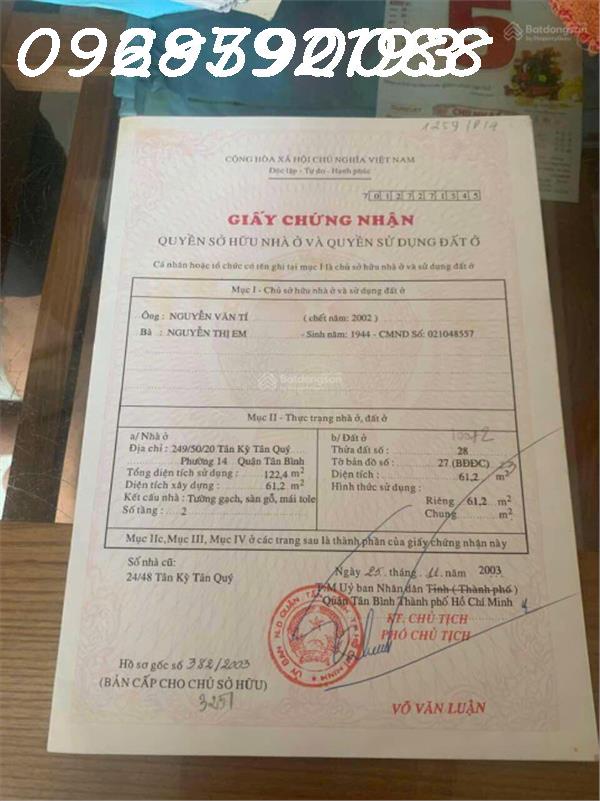 Batdongsan
by PropertyGuru
5
1259/PLA
CỘNG HÒA XÃ HỘI CHỦ NGHĨA VIỆT NAM
Độc lập - Tự do - Hạnh phúc
7 0 1 2 7 2 7 1 3 4 5
GIẤY CHỨNG NHẬN
QUYỀN SỞ HỮU NHÀ Ở VÀ QUYỀN SỬ DỤNG ĐẤT Ở
Cá nhân hoặc tổ chức có tên ghi tại mục I là chủ sở hữu nhà ở và sử dụng đất ở
Mục I - Chủ sở hữu nhà ở và sử dụng đất ở
Ông : NGUYỄN VĂN TÍ ( chết năm: 2002 )
Bà : NGUYỄN THỊ EM - Sinh năm: 1944 - CMND Số: 021048557
Batdongsan
Mục II - Thực trạng nhà ở, đất ở
a/ Nhà ở
Địa chỉ : 249/50/20 Tân Kỳ Tân Quý
Phường 14 Quận Tân Bình
Tổng diện tích sử dụng : 122,4 m2
Diện tích xây dựng : 61,2 m2
Kết cấu nhà : Tường gạch, sàn gỗ, mái tole
Số tầng : 2
b/ Đất ở
Thửa đất số : 28
Tờ bản đồ số : 27 (BĐĐC)
Diện tích : 61,2 m2
Hình thức sử dụng :
Riêng : 61,2 m2
Chung : m2
Mục IIc, Mục III, Mục IV ở các trang sau là thành phần của giấy chứng nhận này
Số nhà cũ:
24/48 Tân Kỳ Tân Quý
Ngày 25 tháng 11 năm 2003
T/M Uỷ ban Nhân dân Tỉnh ( Thành phố )
Quận Tân Bình Thành phố Hồ Chí Minh
KT. CHỦ TỊCH
PHÓ CHỦ TỊCH
Hồ sơ gốc số 382/2003
(BẢN CẤP CHO CHỦ SỞ HỮU)
3251
VÕ VĂN LUẬN